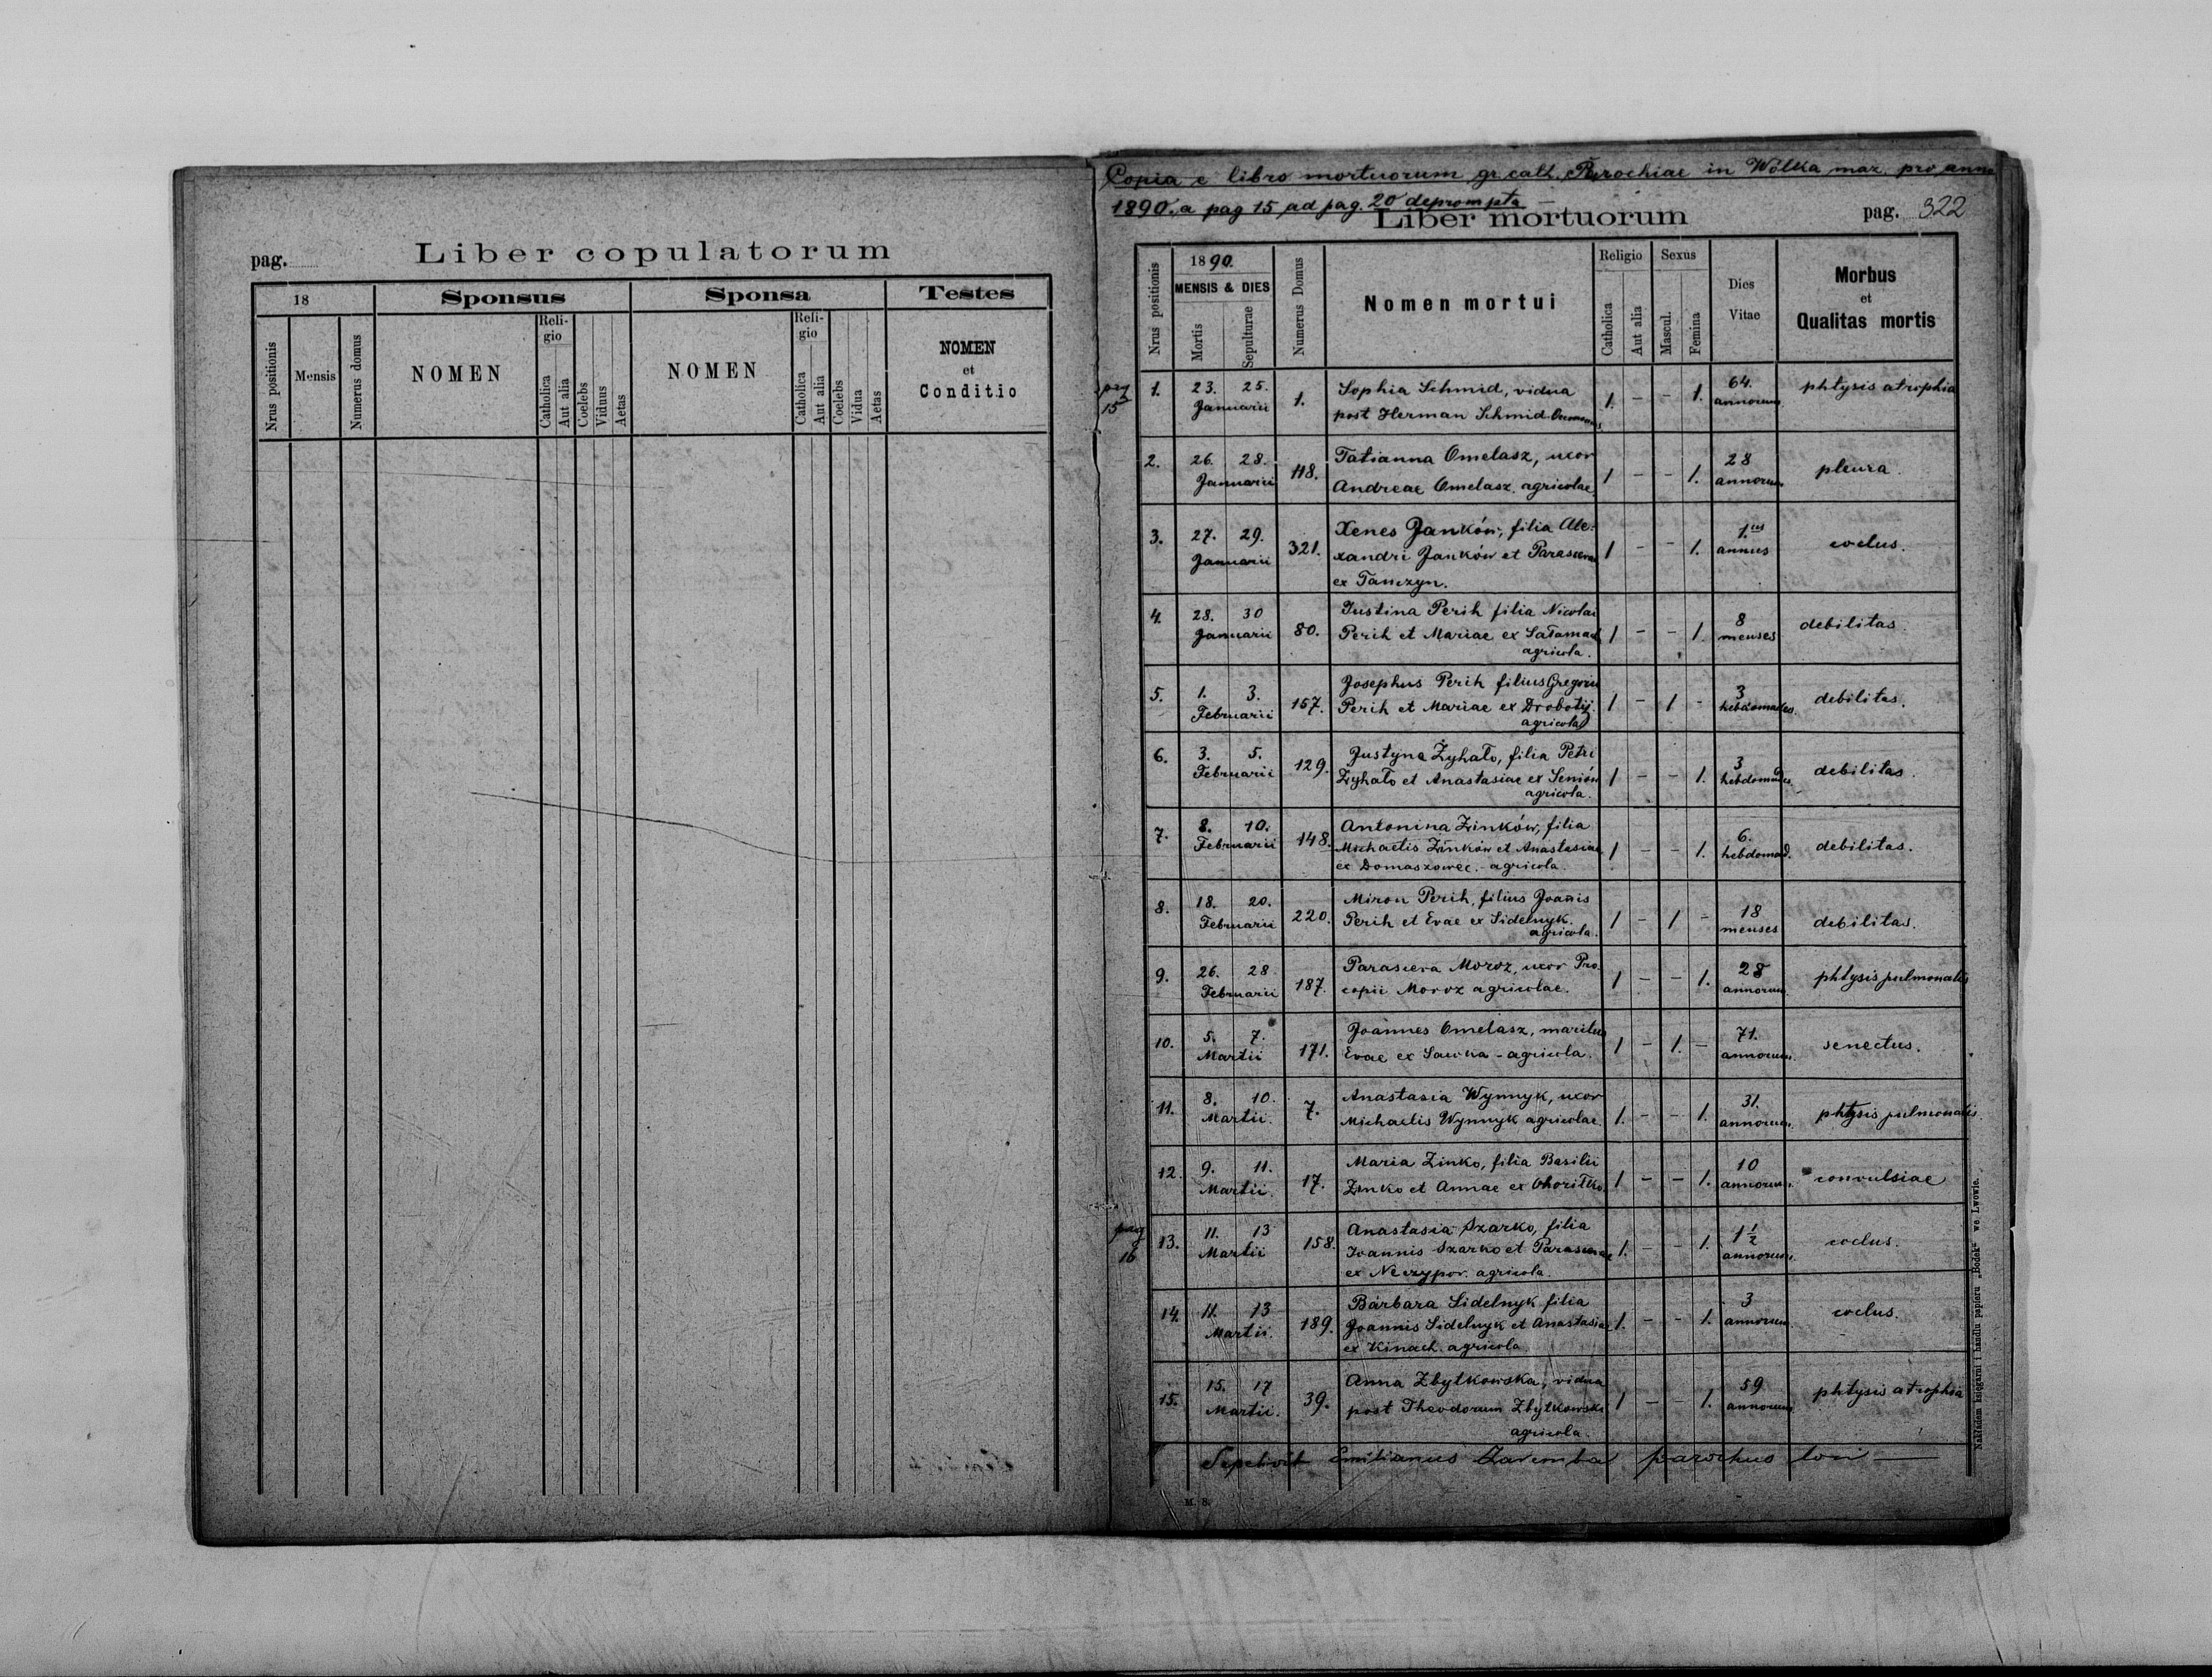 pag.
Liber copulatorum
18
Sponsus
Sponsa
Testes
Nrus positionis
Mensis
Numerus domus
NOMEN
Religio
Catholica
Aut alia
Coelebs
Viduus
Aetas
NOMEN
Religio
Catholica
Aut alia
Coelebs
Vidua
Aetas
NOMEN
et
Conditio
Copia e libro mortuorum gr. cath. Parochiae in Wólka maz. pro anno
1890. a pag 15 ad pag. 20 deprompta
Liber mortuorum
pag. 322
Nrus positionis
1890.
MENSIS & DIES
Mortis
Sepulturae
Numerus Domus
Nomen mortui
Religio
Catholica
Aut alia
Sexus
Mascul.
Femina
Dies
Vitae
Morbus
et
Qualitas mortis
pag 15
1. 23. 25. Januarii 1. Sophia Schmid, vidua 1. - - 1. 64. annorum phtysis atrophia
post Herman Schmid
2. 26. 28. Januarii 118. Tatianna Omelasz, uxor 1 - - 1. 28 annorum pleura.
Andreae Omelasz. agricolae.
3. 27. 29. Januarii 321. Xenes Janków, filia Ale- 1 - - 1. 1.us annus coclus.
xandri Janków et Parascevae
ex Tanczyn.
4. 28. 30 Januarii 80. Justina Perih filia Nicolai 1 - - 1. 8 menses debilitas.
Perih et Mariae ex Sałamach
agricola.
5. 1. 3. Februarii 157. Josephus Perih filius Gregorii 1 - 1 - 3 hebdomades. debilitas.
Perih et Mariae ex Drobotij.
agricola
6. 3. 5. Februarii 129. Justyna Żyhało, filia Petri 1 - - 1. 3 hebdomades debilitas.
Żyhało et Anastasiae ex Senión
agricola.
7. 8. 10. Februarii 148. Antonina Zinków, filia 1 - - 1. 6. hebdomad. debilitas.
Michaelis Zinków et Anastasiae
ex Domaszowec. - agricola.
8. 18. 20. Februarii 220. Miron Perih, filius Joanis 1 - 1 - 18 menses debilitas.
Perih et Evae ex Sidelnyk.
agricola.
9. 26. 28 Februarii 187. Parasceva Moroz, uxor Pro- 1 - - 1. 28 annorum. phtysis pulmonalis
copii Moroz agricolae.
10. 5. 7. Martii 171. Joannes Omelasz, maritus 1 - 1. - 71. annorum. senectus.
Evae ex Sawka - agricola.
11. 8. 10. Martii. 7. Anastasia Wynnyk, uxor 1. - - 1. 31. annorum. phtysis pulmonalis
Michaelis Wynnyk agricolae.
12. 9. 11. Martii. 17. Maria Zinko, filia Basilii 1 - - 1. 10 annorum. convulsiae
Zinko et Annae ex Ohoriłko.
pag 16
13. 11. 13 Martii 158. Anastasia Szarko, filia 1. - - 1. 1 1/2 annorum. coclus.
Joannis Szarko et Parascevae
ex Neczypor. agricola.
14. 11. 13 Martii. 189. Barbara Sidelnyk filia 1. - - 1. 3 annorum. coclus.
Joannis Sidelnyk et Anastasiae
ex Kinach. agricola
15. 15. 17 Martii. 39. Anna Zbytkowska, vidua 1 - - 1. 59 annorum. phtysis atrophia
post Theodorum Zbytkowski
agricola.
Sepelivit Emilianus Zaremba parochus loci
M. B.
Nakładem księgarni i handlu papieru „Bodek" we Lwowie.